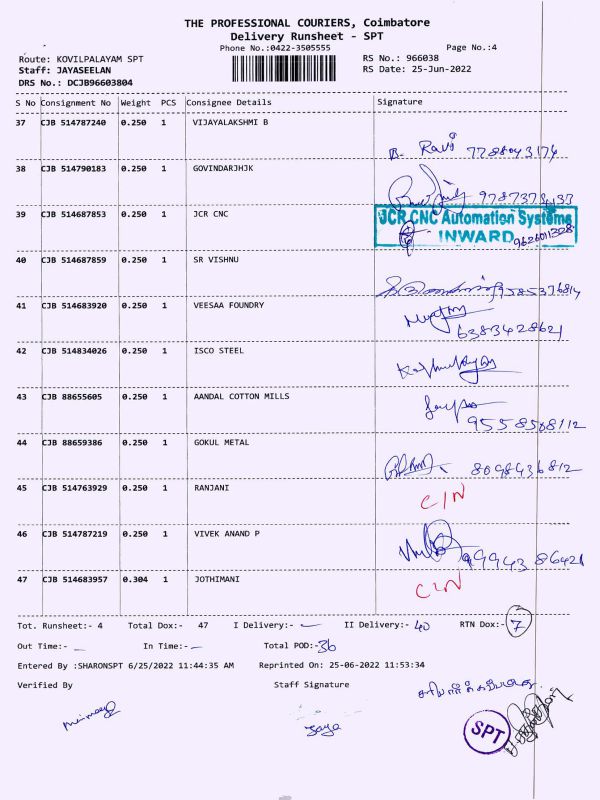 THE PROFESSIONAL COURIERS, Coimbatore
Delivery Runsheet - SPT
Phone No.:0422-3505555 Page No.:4
Route: KOVILPALAYAM SPT RS No.: 966038
Staff: JAYASEELAN RS Date: 25-Jun-2022
DRS No.: DCJB96603804
S No Consignment No Weight PCS Consignee Details Signature
37 CJB 514787240 0.250 1 VIJAYALAKSHMI B
B. Ravi
38 CJB 514790183 0.250 1 GOVINDARJHJK
39 CJB 514687853 0.250 1 JCR CNC
JCR CNC Automation Systems
INWARD
40 CJB 514687859 0.250 1 SR VISHNU
9585376814
41 CJB 514683920 0.250 1 VEESAA FOUNDRY
6383428621
42 CJB 514834026 0.250 1 ISCO STEEL
43 CJB 88655605 0.250 1 AANDAL COTTON MILLS
9558568112
44 CJB 88659386 0.250 1 GOKUL METAL
8098436812
45 CJB 514763929 0.250 1 RANJANI
C/N
46 CJB 514787219 0.250 1 VIVEK ANAND P
9994386421
47 CJB 514683957 0.304 1 JOTHIMANI
C/N
Tot. Runsheet:- 4 Total Dox:- 47 I Delivery:- II Delivery:- 40 RTN Dox:- 7
Out Time:- In Time:- Total POD:- 36
Entered By :SHARONSPT 6/25/2022 11:44:35 AM Reprinted On: 25-06-2022 11:53:34
Verified By Staff Signature
Jaya
SPT